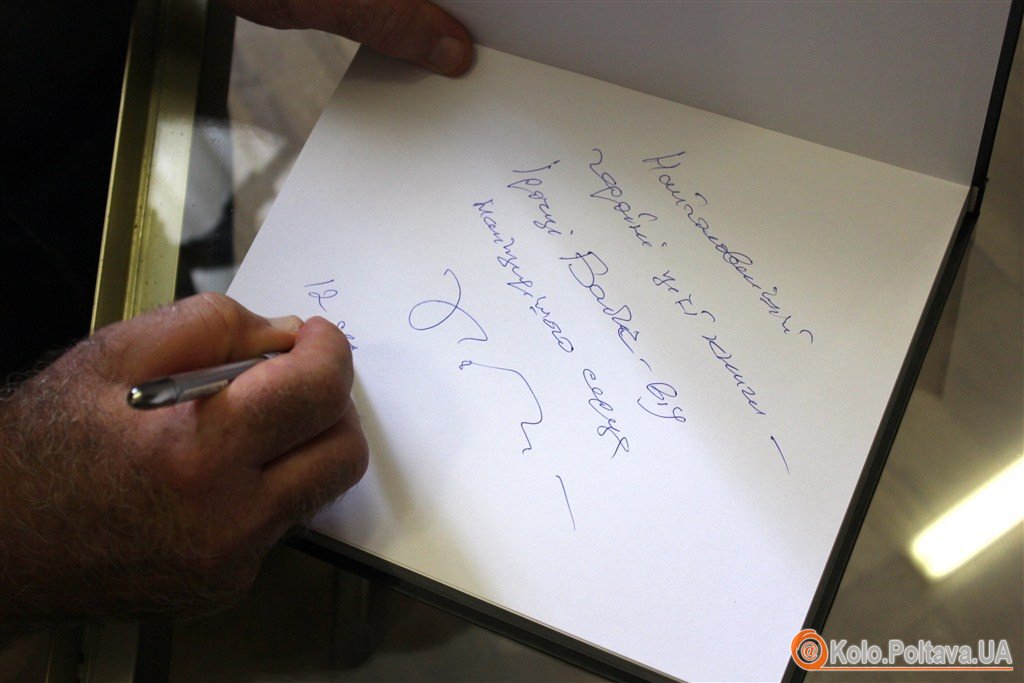 Найголовнішій
героїні цієї книги –
Ірочці Бабкє – від
найщирішого серця
12 сер
Kolo.Poltava.UA